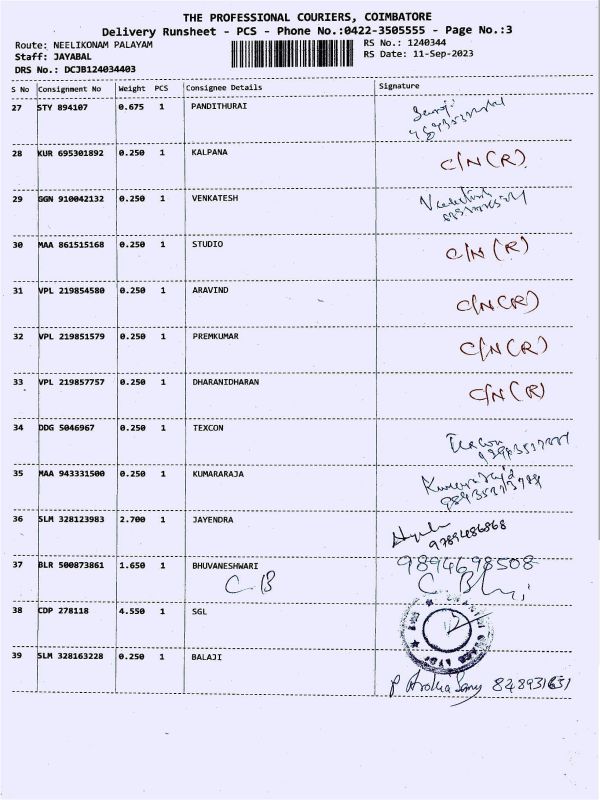 THE PROFESSIONAL COURIERS, COIMBATORE
Delivery Runsheet - PCS - Phone No.:0422-3505555 - Page No.:3
Route: NEELIKONAM PALAYAM
Staff: JAYABAL
DRS No.: DCJB124034403
RS No.: 1240344
RS Date: 11-Sep-2023
S No Consignment No Weight PCS Consignee Details Signature
27 STY 894107 0.675 1 PANDITHURAI
28 KUR 695301892 0.250 1 KALPANA C/N(R)
29 GGN 910042132 0.250 1 VENKATESH
30 MAA 861515168 0.250 1 STUDIO C/N(R)
31 VPL 219854580 0.250 1 ARAVIND C/N(R)
32 VPL 219851579 0.250 1 PREMKUMAR C/N(R)
33 VPL 219857757 0.250 1 DHARANIDHARAN C/N(R)
34 DDG 5046967 0.250 1 TEXCON Texcon
35 MAA 943331500 0.250 1 KUMARARAJA
36 SLM 328123983 2.700 1 JAYENDRA 9789486868
37 BLR 500873861 1.650 1 BHUVANESHWARI 9894698508
C B C B
38 CDP 278118 4.550 1 SGL
39 SLM 328163228 0.250 1 BALAJI